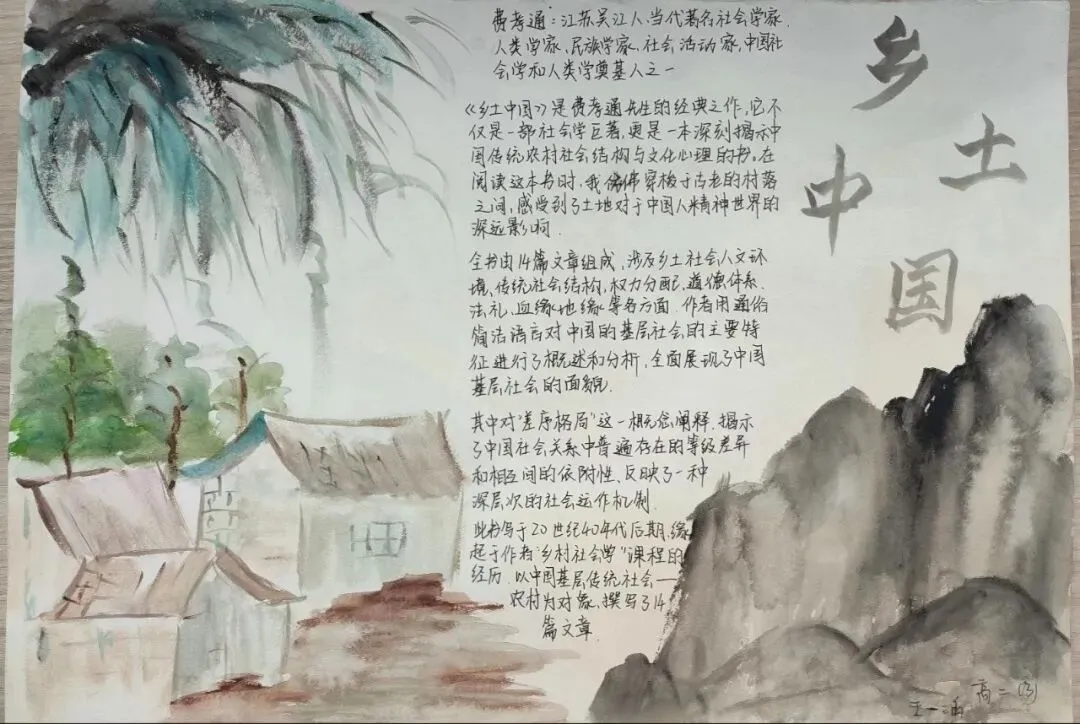 乡土中国
费孝通：江苏吴江人、当代著名社会学家、
人类学家、民族学家、社会活动家，中国社
会学和人类学奠基人之一
《乡土中国》是费孝通先生的经典之作，它不
仅是一部社会学巨著，更是一本深刻揭示中
国传统农村社会结构与文化心理的书。在
阅读这本书时，我仿佛穿梭于古老的村落
之间，感受到了土地对于中国人精神世界的
深远影响.
全书由14篇文章组成，涉及乡土社会人文环
境、传统社会结构，权力分配，道德体系、
法礼、血缘地缘等各方面.作者用通俗
简洁语言对中国的基层社会的主要特
征进行了概述和分析，全面展现了中国
基层社会的面貌.
其中对"差序格局"这一概念阐释，揭示
了中国社会关系中普遍存在的等级差异
和相互间的依附性、反映了一种
深层次的社会运作机制.
此书写于20世纪40年代后期，缘
起于作者"乡村社会学"课程的
经历.以中国基层传统社会——
农村为对象，撰写了14
篇文章.
高二
王一涵